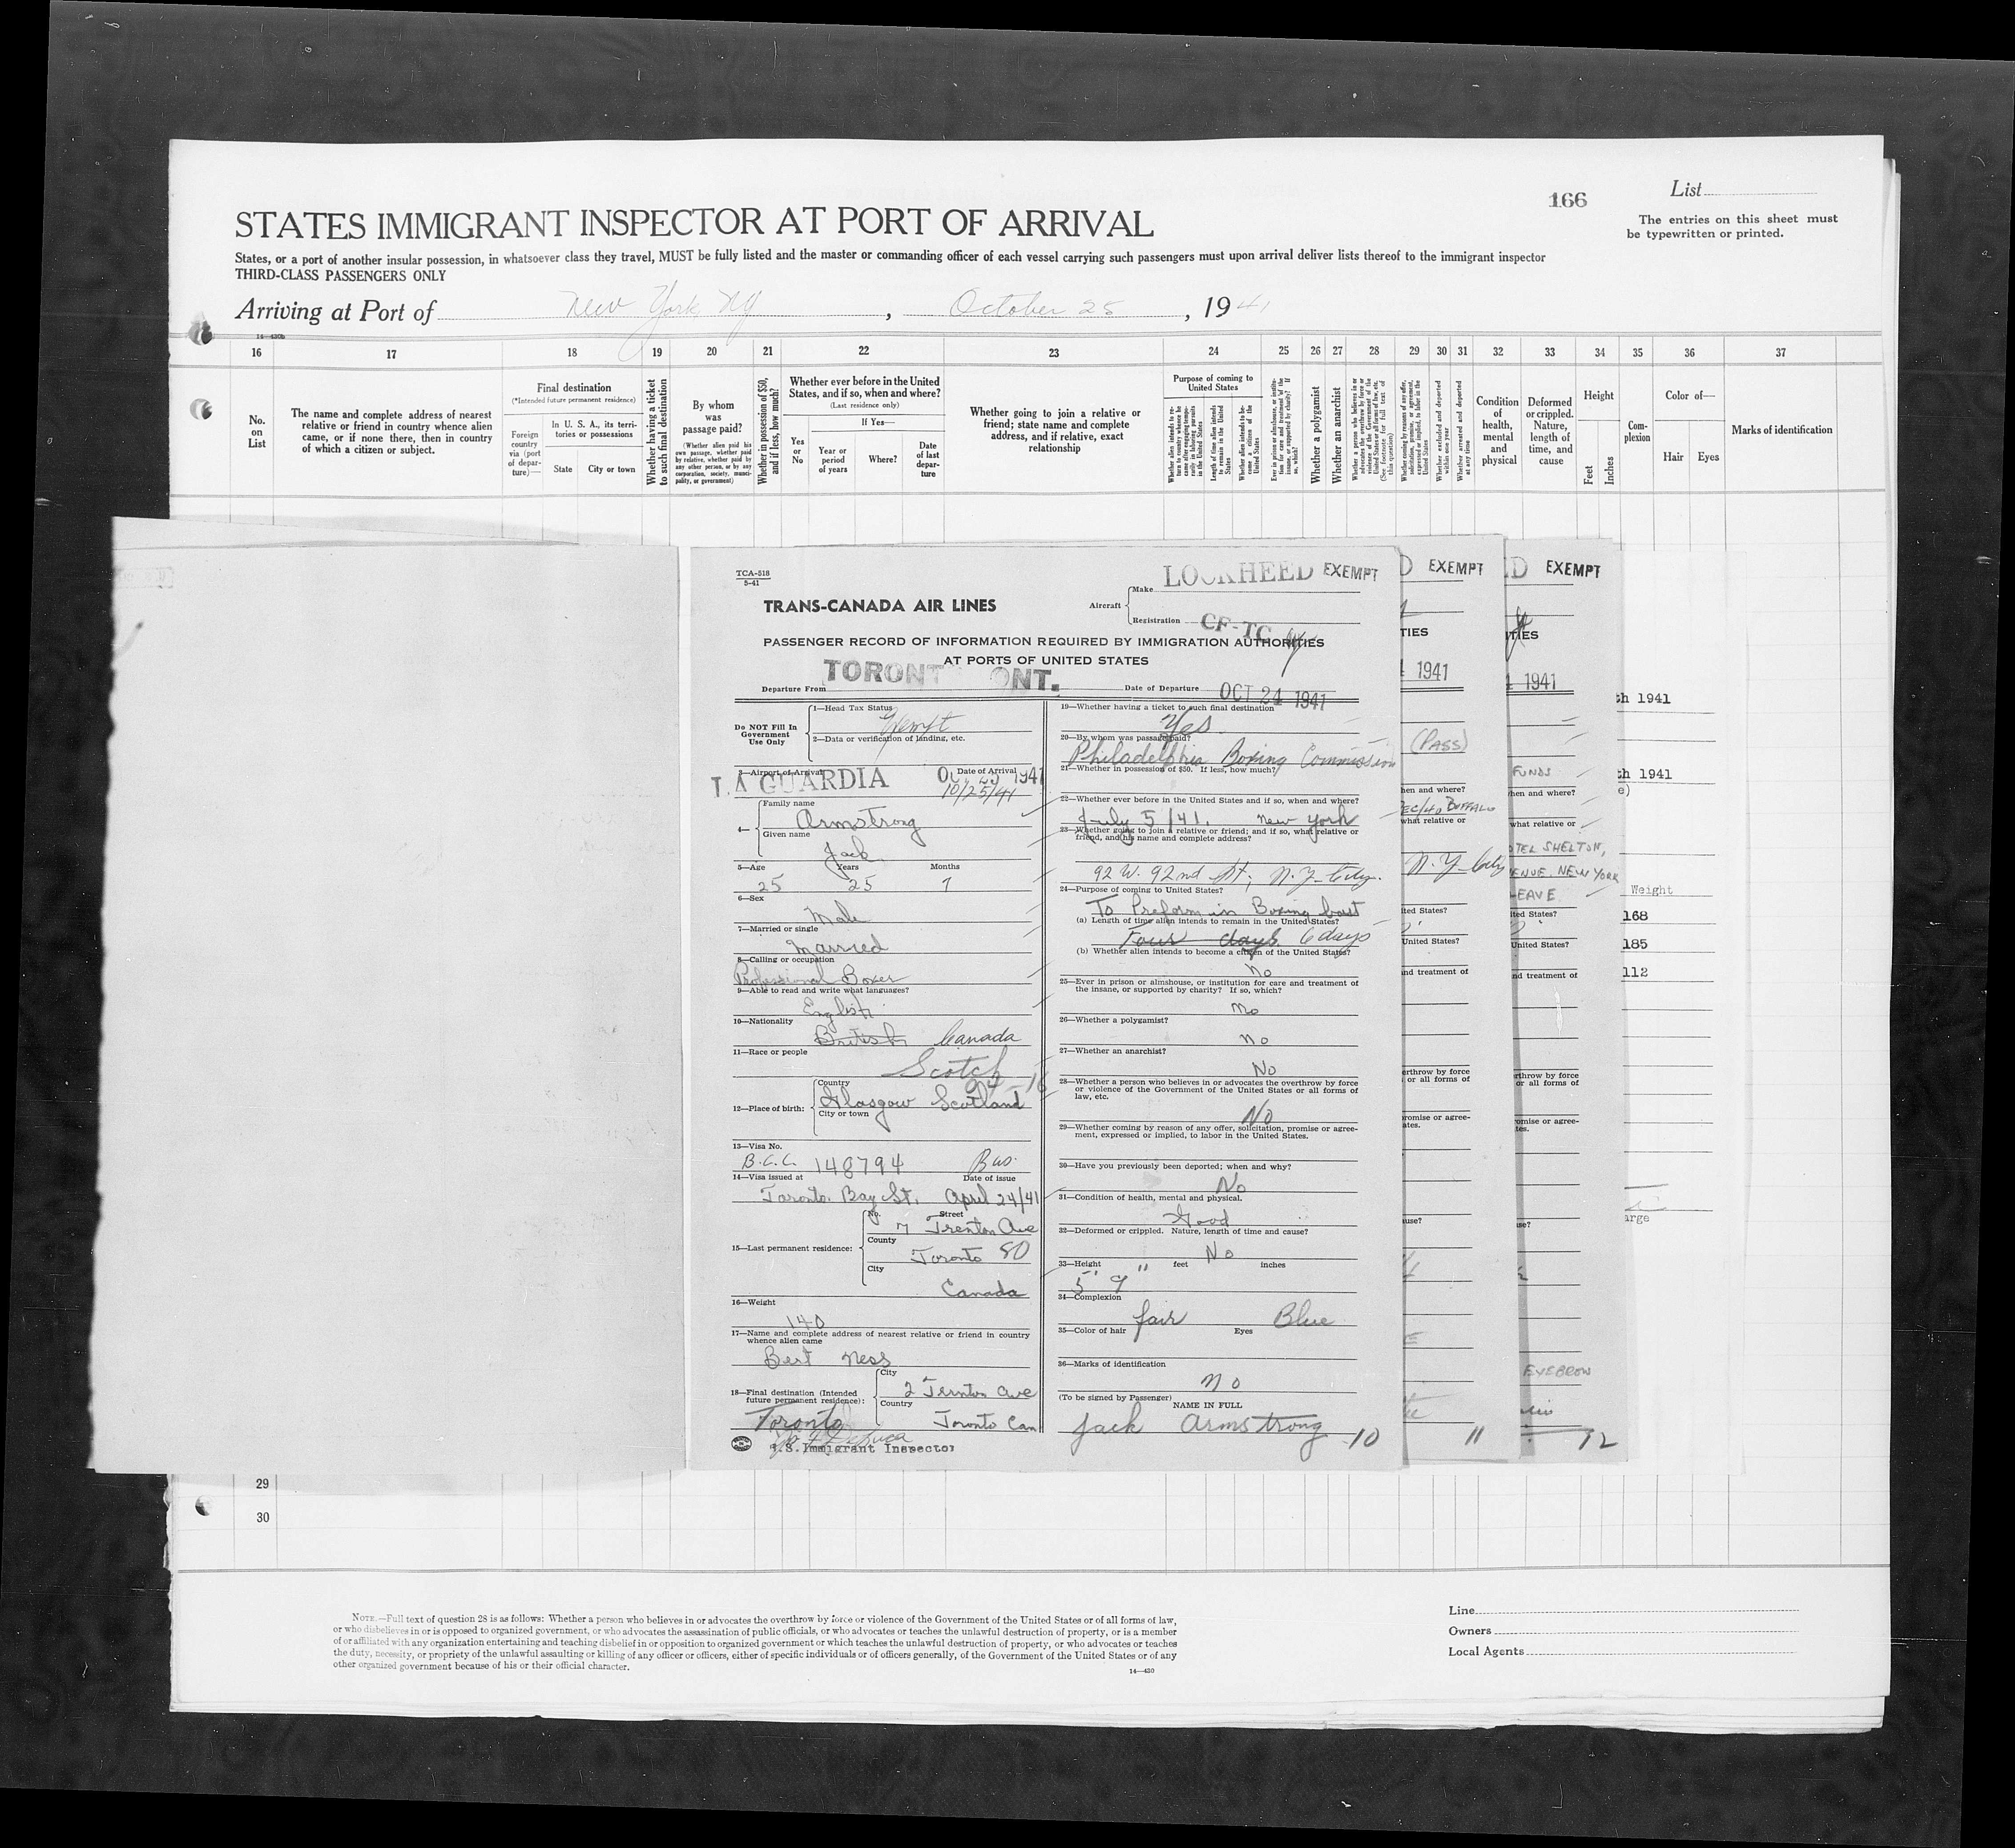 166
List
STATES IMMIGRANT INSPECTOR AT PORT OF ARRIVAL
The entries on this sheet must
be typewritten or printed.
States, or a port of another insular possession, in whatsoever class they travel, MUST be fully listed and the master or commanding officer of each vessel carrying such passengers must upon arrival deliver lists thereof to the immigrant inspector
THIRD-CLASS PASSENGERS ONLY
Arriving at Port of New York, NY, October 25, 1941
14-430b
16 17 18 19 20 21 22 23 24 25 26 27 28 29 30 31 32 33 34 35 36 37
No. on List
The name and complete address of nearest relative or friend in country whence alien came, or if none there, then in country of which a citizen or subject.
Final destination
(*Intended future permanent residence)
Foreign country via (port of departure)—
In U. S. A., its territories or possessions
State
City or town
Whether having a ticket to such final destination
By whom was passage paid?
(Whether alien paid his own passage, whether paid by relative, whether paid by any other person, or by any corporation, society, municipality, or government)
Whether in possession of $50, and if less, how much?
Whether ever before in the United States, and if so, when and where?
(Last residence only)
Yes or No
If Yes—
Year or period of years
Where?
Date of last departure
Whether going to join a relative or friend; state name and complete address, and if relative, exact relationship
Purpose of coming to United States
Length of time alien intends to remain in the United States
Whether alien intends to become a citizen of the United States
Whether a polygamist
Whether an anarchist
Whether excluded and deported within one year
Whether arrested and deported at any time
Condition of health, mental and physical
Deformed or crippled. Nature, length of time, and cause
Height
Feet
Inches
Complexion
Color of—
Hair
Eyes
Marks of identification
TCA-518
5-41
TRANS-CANADA AIR LINES
Aircraft
Make LOCKHEED EXEMPT
Registration CF-TC
PASSENGER RECORD OF INFORMATION REQUIRED BY IMMIGRATION AUTHORITIES
AT PORTS OF UNITED STATES
Departure From TORONT ONT.
Date of Departure OCT 24 1941
Do NOT Fill In
Government
Use Only
1—Head Tax Status
Exempt
2—Data or verification of landing, etc.
3—Airport of Arrival
LA GUARDIA
Date of Arrival
10/25/41
4—
Family name
Armstrong
Given name
Jack
5—Age Years Months
25 25 7
6—Sex
Male
7—Married or single
Married
8—Calling or occupation
Professional Boxer
9—Able to read and write what languages?
English
10—Nationality
British Canada
11—Race or people
Scotch
12—Place of birth:
Country
Glasgow Scotland
City or town
13—Visa No.
B.C.C. 148794 Bus.
14—Visa issued at Date of issue
Toronto Bay St. April 24/41
15—Last permanent residence:
No. Street
7 Trenton Ave
County
Toronto 80
City
Canada
16—Weight
140
17—Name and complete address of nearest relative or friend in country
whence alien came
Bert Ness
18—Final destination (Intended
future permanent residence):
City
Country
Toronto
Toronto Can
U.S. Immigrant Inspector
19—Whether having a ticket to such final destination
Yes
20—By whom was passage paid?
Philadelphia Boxing Commission
21—Whether in possession of $50. If less, how much?
22—Whether ever before in the United States and if so, when and where?
July 5/41. New York
23—Whether going to join a relative or friend; and if so, what relative or
friend, and his name and complete address?
92 W. 92nd St; N.Y. City.
24—Purpose of coming to United States?
To Preform in Boxing bout
(a) Length of time alien intends to remain in the United States?
Four days 6 days
(b) Whether alien intends to become a citizen of the United States?
No
25—Ever in prison or almshouse, or institution for care and treatment of
the insane, or supported by charity? If so, which?
No
26—Whether a polygamist?
No
27—Whether an anarchist?
No
28—Whether a person who believes in or advocates the overthrow by force
or violence of the Government of the United States or all forms of
law, etc.
No
29—Whether coming by reason of any offer, solicitation, promise or agree-
ment, expressed or implied, to labor in the United States.
30—Have you previously been deported; when and why?
No
31—Condition of health, mental and physical.
Good
32—Deformed or crippled. Nature, length of time and cause?
No
33—Height feet inches
5' 9"
34—Complexion
fair
35—Color of hair Eyes
Blue
36—Marks of identification
No
(To be signed by Passenger)
NAME IN FULL
Jack Armstrong
10
EXEMPT
TIES
1941
(PASS)
hen and where?
BUFFALO
what relative or
N.Y. City
ited States?
United States?
nd treatment of
erthrow by force
or all forms of
romise or agree-
ates.
ause?
11
EXEMPT
TIES
1941
FUNDS
hen and where?
what relative or
OTEL SHELTON,
ENUE. NEW YORK
LEAVE
ited States?
United States?
nd treatment of
rthrow by force
or all forms of
omise or agree-
tes.
se?
EYEBROW
12
th 1941
th 1941
e)
Weight
168
185
112
arge
29
30
NOTE.—Full text of question 28 is as follows: Whether a person who believes in or advocates the overthrow by force or violence of the Government of the United States or of all forms of law,
or who disbelieves in or is opposed to organized government, or who advocates the assassination of public officials, or who advocates or teaches the unlawful destruction of property, or is a member
of or affiliated with any organization entertaining and teaching disbelief in or opposition to organized government or which teaches the unlawful destruction of property, or who advocates or teaches
the duty, necessity, or propriety of the unlawful assaulting or killing of any officer or officers, either of specific individuals or of officers generally, of the Government of the United States or of any
other organized government because of his or their official character.
14—430
Line
Owners
Local Agents